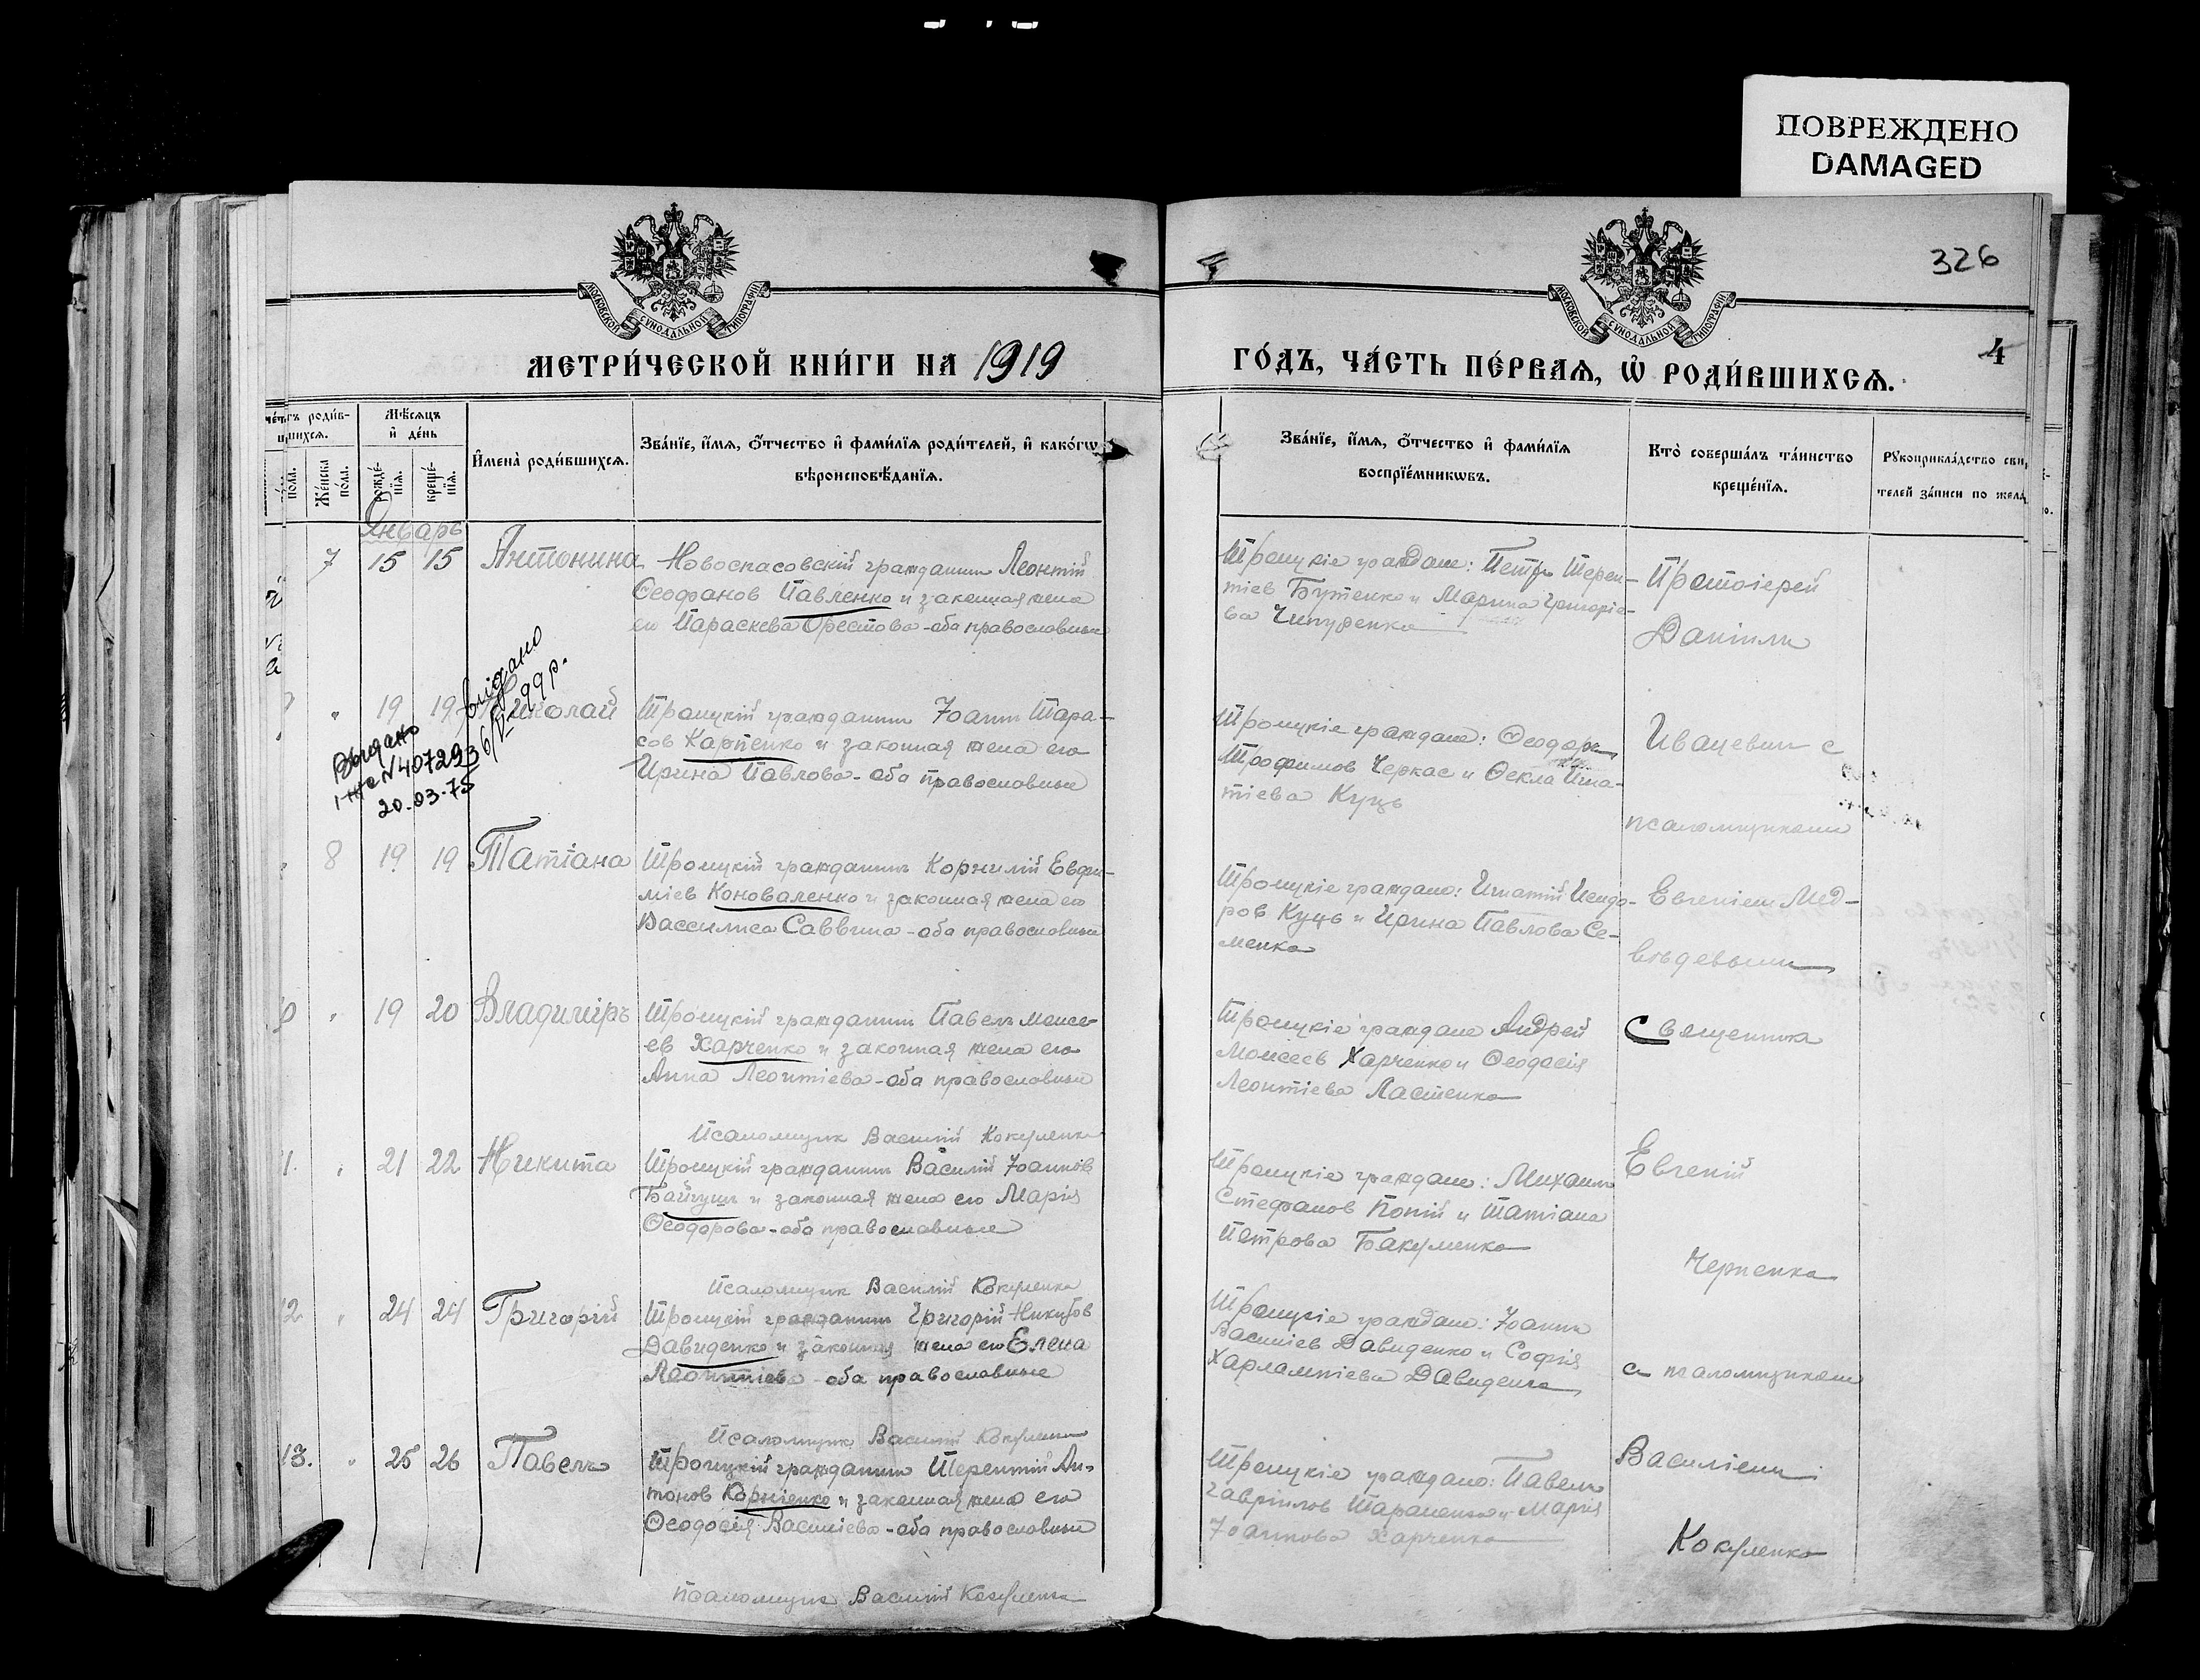 ПОВРЕЖДЕНО
DAMAGED
326
4
МОСКОВСКОЙ СѴНОДАЛЬНОЙ ТИПОГРАФІИ
МОСКОВСКОЙ СѴНОДАЛЬНОЙ ТИПОГРАФІИ
МЕТРИ́ЧЕСКОЙ КНИ́ГИ НА 1919
ГО́ДЪ, ЧА́СТЬ ПЕ́РВАѦ, Ѡ҆ РОДИ́ВШИХСѦ.
Мѣ́сѧцъ и҆ де́нь
Же́нска по́ла.
рожде́нїѧ.
креще́нїѧ.
И҆мена̀ роди́вшихсѧ.
Зва́нїе, и҆́мѧ, ѻ҆́тчество и҆ фами́лїѧ роди́телей, и҆ како́гѡ
вѣроисповѣ́данїѧ.
Зва́нїе, и҆́мѧ, ѻ҆́тчество и҆ фами́лїѧ
воспрїе́мникѡвъ.
Кто̀ соверша́лъ та́инство
креще́нїѧ.
Рꙋкоприкла́дство сви
телей за́писи по жела
Январь
7 15 15 Антонина
Новоспасовскій гражданин Леонтій
Ѳеофанов Павленко и законная жена
ею Параскева Орестова - оба православные
Троицкіе граждане: Петр Терен-
тіев Бутенко и Марина Григоріе-
ва Чипуренко
Протоіерей
Даніил
" 19 19 Николай
Троицкій гражданин Іоанн Тара-
сов Карпенко и законная жена его
Ирина Павлова - оба православные
Троицкіе граждане: Ѳеодор
Трофимов Черкас и Ѳекла Игна-
тіева Куцъ
Ивацевич с
псаломщиком
Видано
6/VI-1999р.
Выдано
I-жс N407293
20-03-75
8 19 19 Татіана
Троицкій гражданин Корнилій Евфи-
міев Коноваленко и законная жена его
Вассилиса Саввина - оба православные
Троицкіе граждане: Игнатій Исидо-
ров Куцъ и Ирина Павлова Се-
менко
Евгеніем Мед-
вѣдевым
" 19 20 Владиміръ
Троицкій гражданин Павел Моисе-
ев Харченко и законная жена его
Анна Леонтіева - оба православные
Троицкіе граждане Андрей
Моисеев Харченко и Ѳеодосія
Леонтіева Ластенко
Священник
Псаломщик Василій Кокуленко
1. " 21 22 Никита
Троицкій гражданин Василій Іоаннов
Байгуш и законная жена его Марія
Ѳеодорова - оба православные
Троицкіе граждане: Михаил
Стефанов Попій и Татіана
Петрова Бакуменко
Евгеній
Черненко
Псаломщик Василій Кокуленко
12 " 24 24 Григорій
Троицкій гражданин Григорій Никитов
Давиденко и законная жена его Елена
Леонтіева - оба православные
Троицкіе граждане: Іоанн
Василіев Давиденко и Софія
Харлампіева Давиденко
с псаломщиком
Псаломщик Василій Кокуленко
13. " 25 26 Павелъ
Троицкій гражданин Терентій Ан-
тонов Корніенко и законная жена его
Ѳеодосія Василіева - оба православные
Троицкіе граждане: Павел
Гавріилов Тараненко и Марія
Іоаннова Харченко
Василіем
Кокуленко
Псаломщик Василій Кокуленко